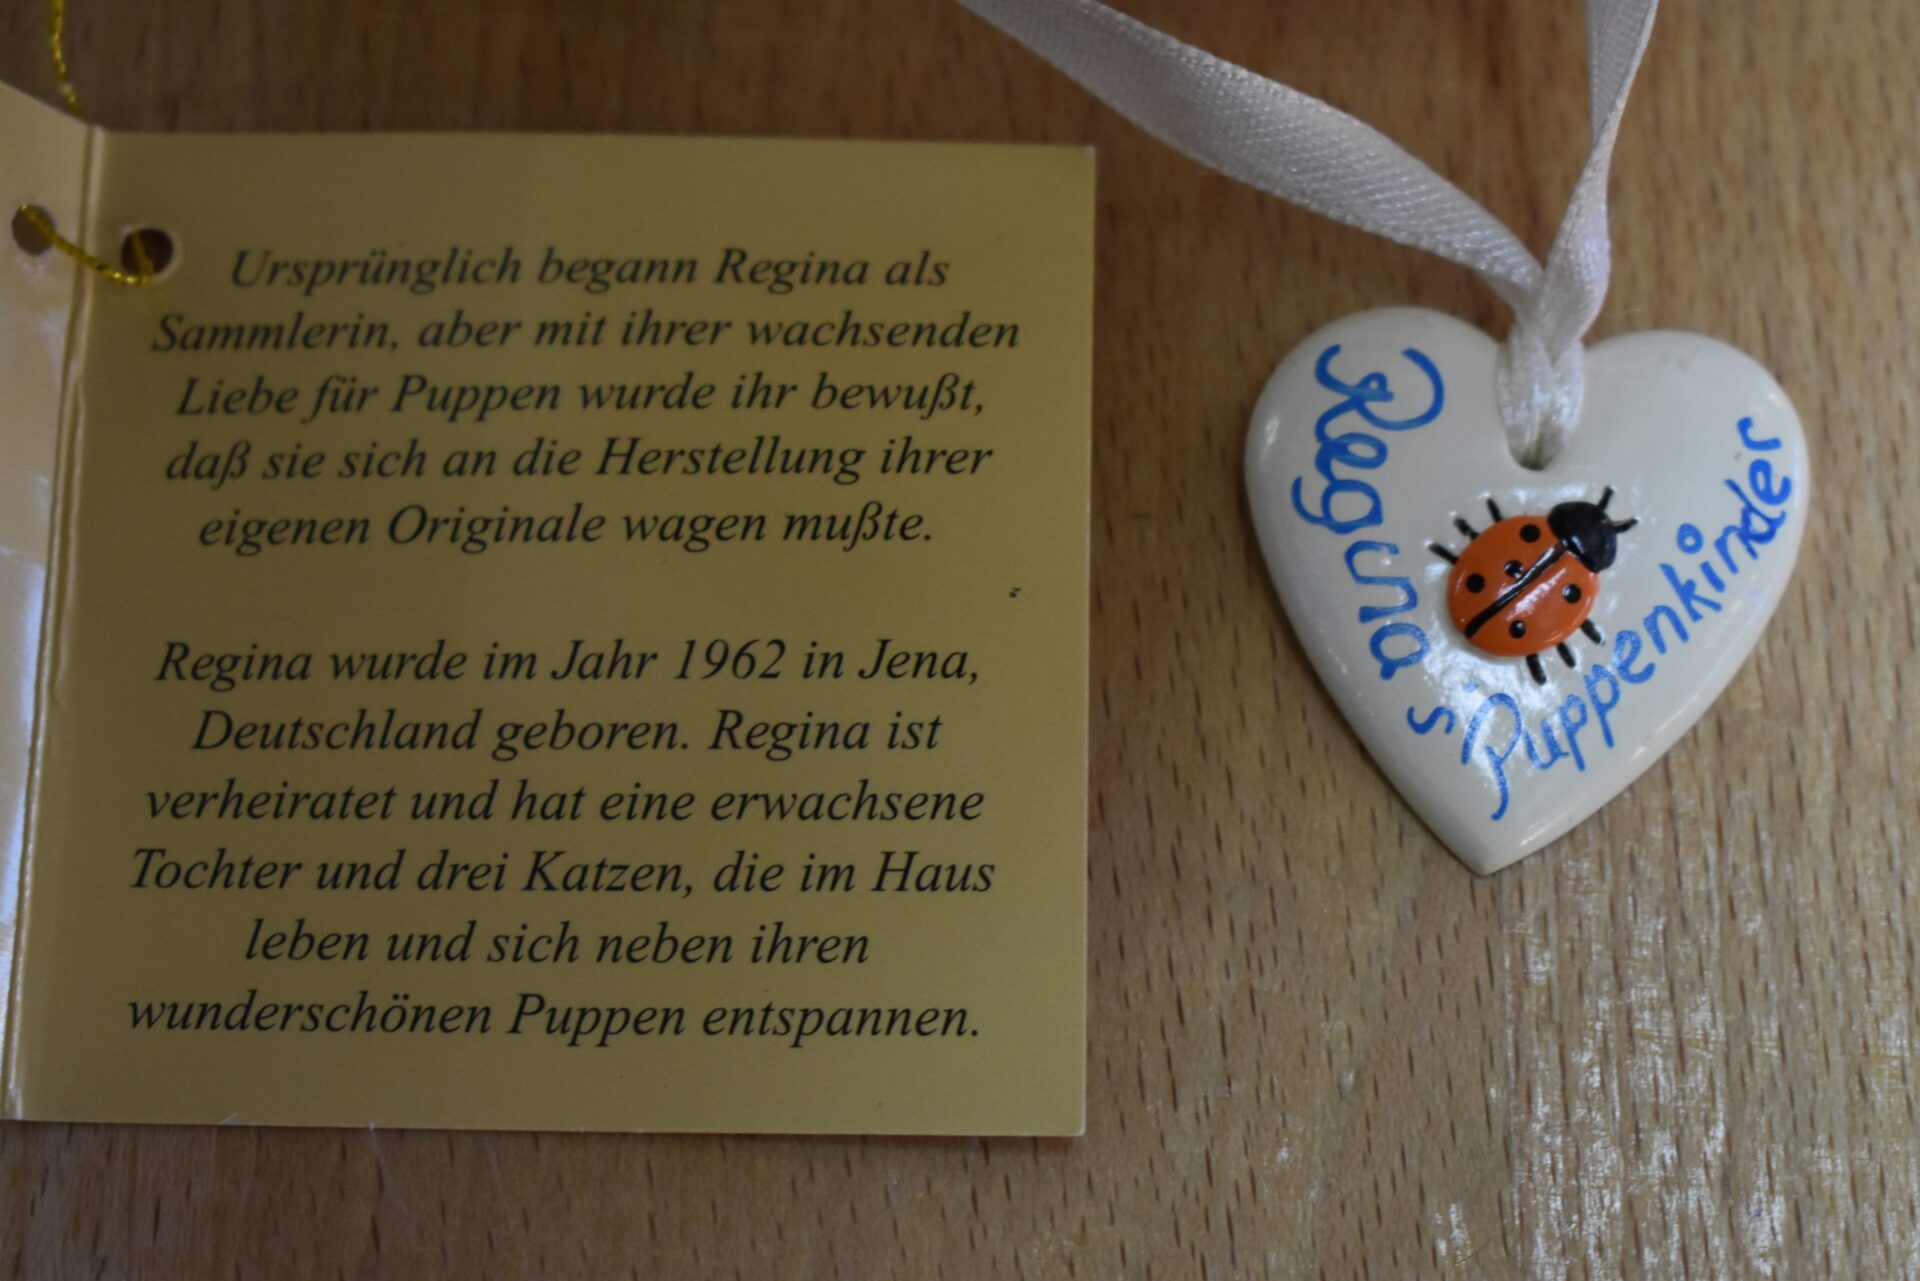 Ursprünglich begann Regina als
Sammlerin, aber mit ihrer wachsenden
Liebe für Puppen wurde ihr bewußt,
daß sie sich an die Herstellung ihrer
eigenen Originale wagen mußte.
Regina wurde im Jahr 1962 in Jena,
Deutschland geboren. Regina ist
verheiratet und hat eine erwachsene
Tochter und drei Katzen, die im Haus
leben und sich neben ihren
wunderschönen Puppen entspannen.
Regina's
Puppenkinder